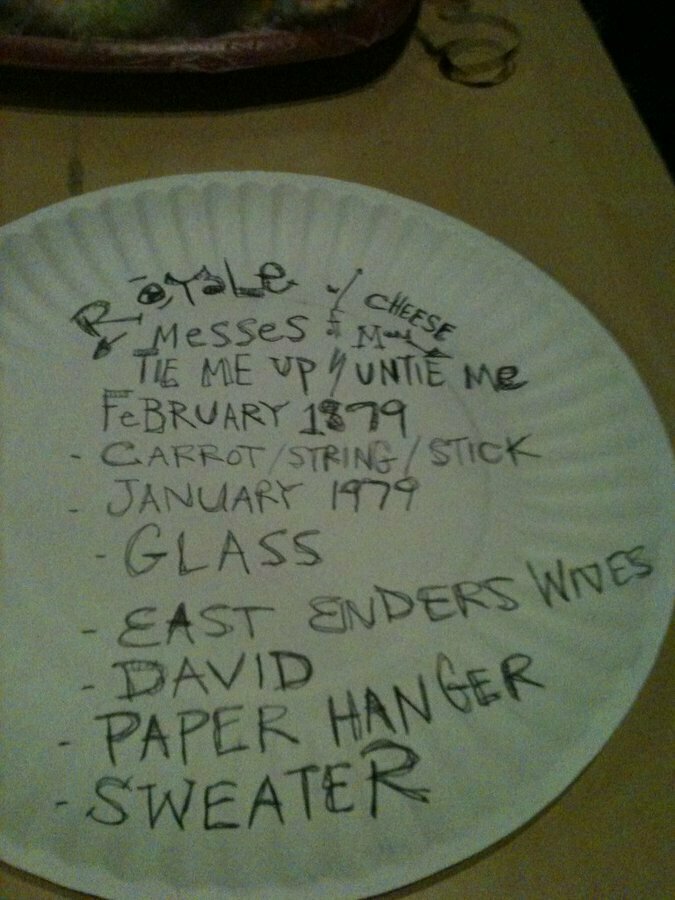 Royale w/ CHEESE
Messes & Men
TIE ME UP // UNTIE Me
FeBRUARY 1879
- CARROT/STRING/STICK
- JANUARY 1979
- GLASS
- EAST ENDERS WIVES
- DAVID
- PAPER HANGER
- SWEATER